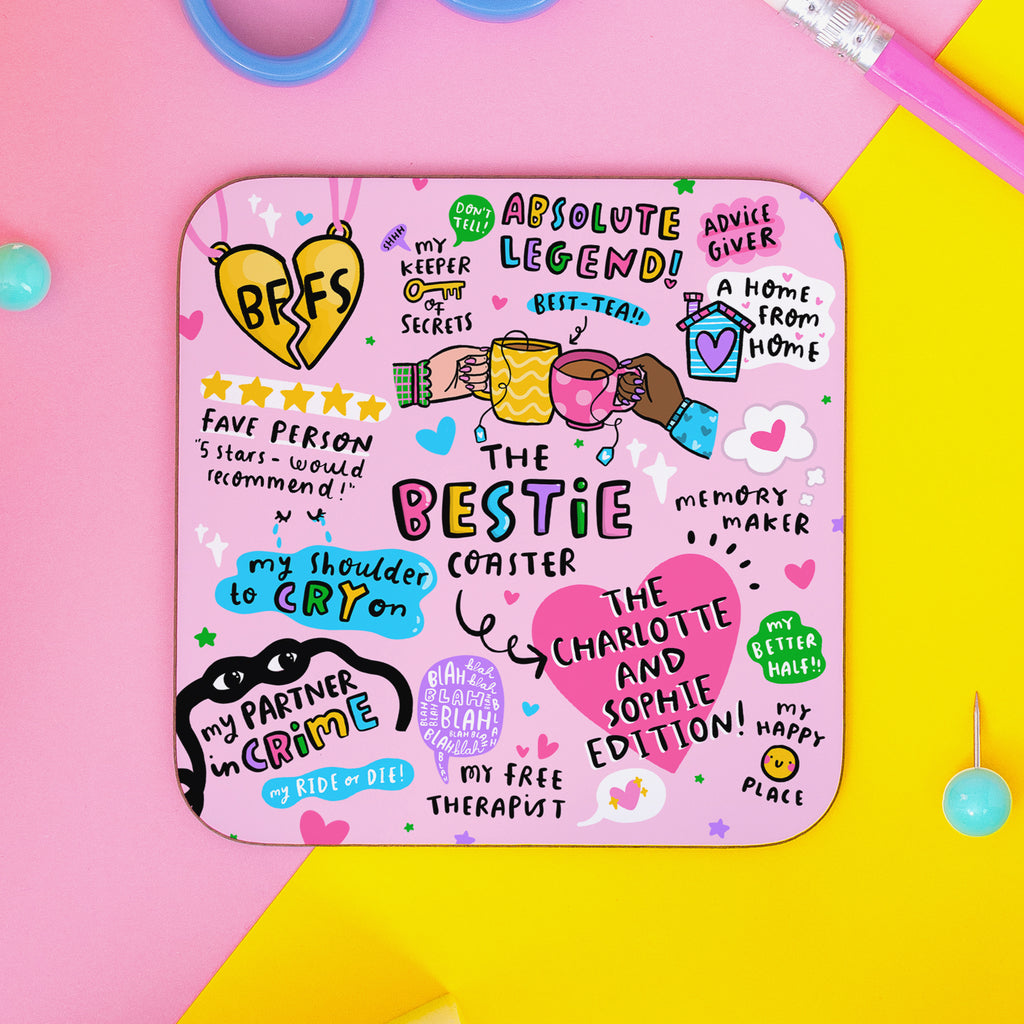 BFFS
SHHH
DON'T
TELL!
MY
KEEPER
OF
SECRETS
ABSOLUTE
LEGEND!
ADVICE
GIVER
A HOME
FROM
HOME
BEST-TEA!!
FAVE PERSON
"5 stars - would
recommend!"
THE
BESTiE
COASTER
MEMORY
MAKER
my shoulder
to CRY on
THE
CHARLOTTE
AND
SOPHIE
EDITION!
MY
BETTER
HALF!!
my PARTNER
in CRiME
my RIDE or DIE!
BLAH blah
BLAH blah
BLAH
BLAH
BLAH BLAH
BLAH blah
BLA
MY FREE
THERAPiST
MY
HAPPY
PLACE